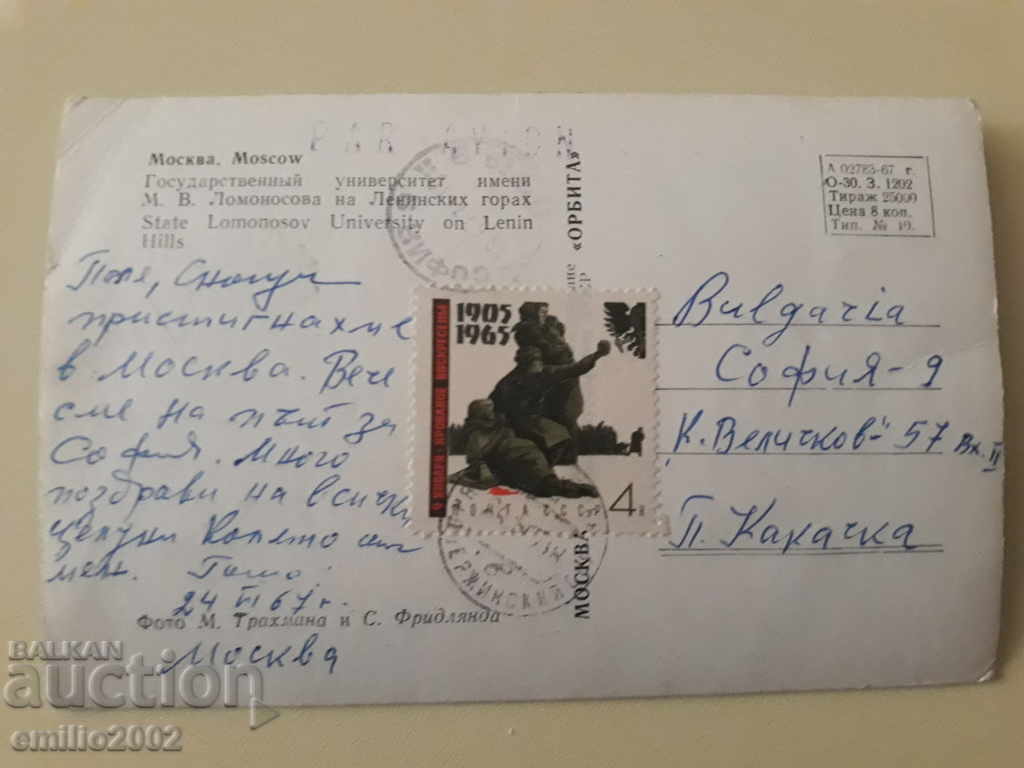 PAR AVION
Москва. Moscow
Государственный университет имени
М. В. Ломоносова на Ленинских горах
State Lomonosov University on Lenin
Hills
А 02783-67 г.
О-30. З. 1202
Тираж 25000
Цена 8 коп.
Тип. № 19.
Поля, Снощи
пристигнахме
в Москва. Вече
сме на път за
София. Много
поздрави на всички
Целуни
мен. Гошо.
24 VI 67 г.
Москва
Фото М. Трахмана и С. Фридлянда
1905
1965
9 ЯНВАРЯ · КРОВАВОЕ ВОСКРЕСЕНЬЕ
ПОЧТА СССР 4 к
«ОРБИТА»
МОСКВА
Bulgaria
София-9
"К. Величков"-57 Вх. II
П. Какачка
BALKAN
auction
emilio2002